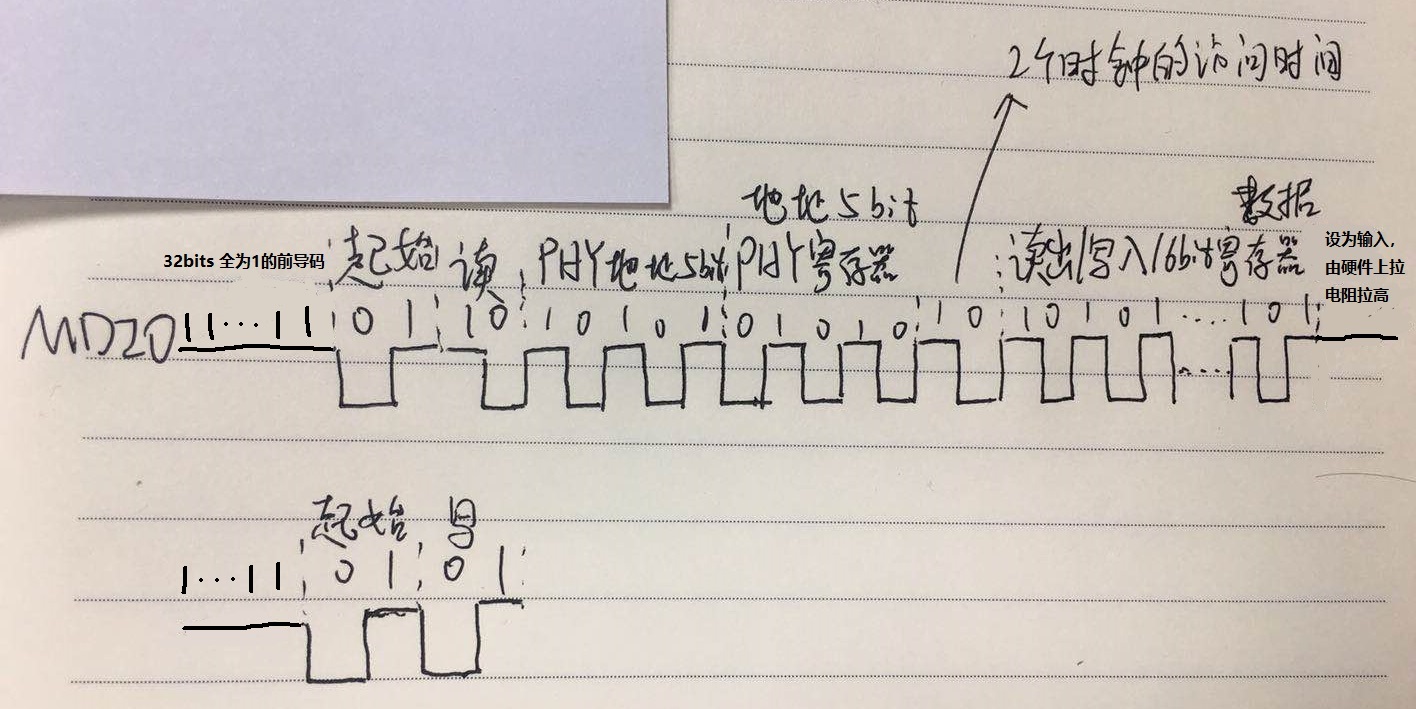 2个时钟的访问时间
地址5bit 数据
32bits 全为1的前导码 起始 读 PHY地址5bit PHY寄存器 读出/写入16bit寄存器 设为输入,
由硬件上拉
电阻拉高
MDIO 11···11 01 10 10101 01010 10 10101····101
起始 写
1···11 01 01